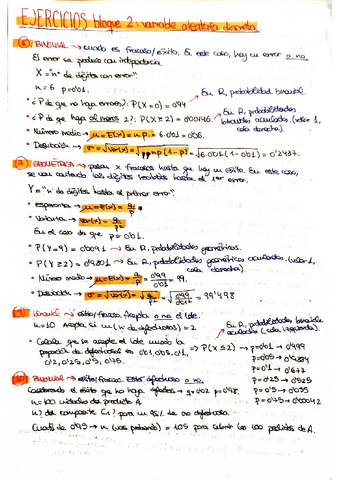 EJERCICIOS bloque 2: variable aleatoria discreta
6) BINOMIAL → cuando es fracaso/éxito. En este caso, hay un error o no.
El error se produce con independencia.
X = "nº de dígitos con error"
n = 6 p = 0'01.
• ¿P de que no haya errores?: P(X=0) = 0'94 → En R, probabilidad binomial.
• ¿P de que haya al menos 2?: P(X≥2) = 0'00146. → En R, probabilidades binomiales acumuladas. (valor 1, cola derecha).
• Número medio → μ = E(x) = n·p = 6·0'01 = 0'06.
• Desviación → σ = √Var(x) = √n·p(1-p) = √6·0'01(1-0'01) = 0'2437.
7) GEOMÉTRICA → pasan x fracasos hasta que hay un éxito. En este caso,
se van contando los dígitos recibidos hasta el 1er error.
Y = "nº de dígitos hasta el primer error".
• Esperanza → μ = E(x) = q/p
• Varianza → Var(x) = q/p²
En el caso de que p = 0'01.
• P(Y=9) = 0'0091 → En R, probabilidades geométricas.
• P(Y≥2) = 0'9801 → En R, probabilidades geométricas acumuladas. (valor 1, cola derecha)
• Número medio → μ = E(x) = q/p = 0'99/0'01 = 99.
• Desviación → σ = √Var(x) = √q/p² = √0'99/0'01² = 99'498
9) Binomial → éxito/fracaso. Acepta o no el lote.
n=10 Acepta si nº (nº de defectuosos) = 2
En R, probabilidades binomial acumuladas (cola izquierda).
• Calcular que se acepte el lote cuando la
proporción de defectuosos es 0'01, 0'05, 0'1,
0'2, 0'25, 0'5, 0'75.
⇒ P(X≤2) → p=0'01 → 0'999
p=0'05 → 0'9884
p=0'1 →
p=0'25 → 0'525
p=0'5 → 0'055
p=0'75 → 0'00042
10) BINOMIAL → éxito/fracaso. Está defectuoso o no.
Consideramos el éxito que no haya defectos → q=0'02 p=0'98.
n = 100 unidades del producto A.
n? del componente C1? para un 95% de no defectuoso.
Cuantil de 0'95 → n (voy probando) = 105 para cubrir los 100 pedidos de A.